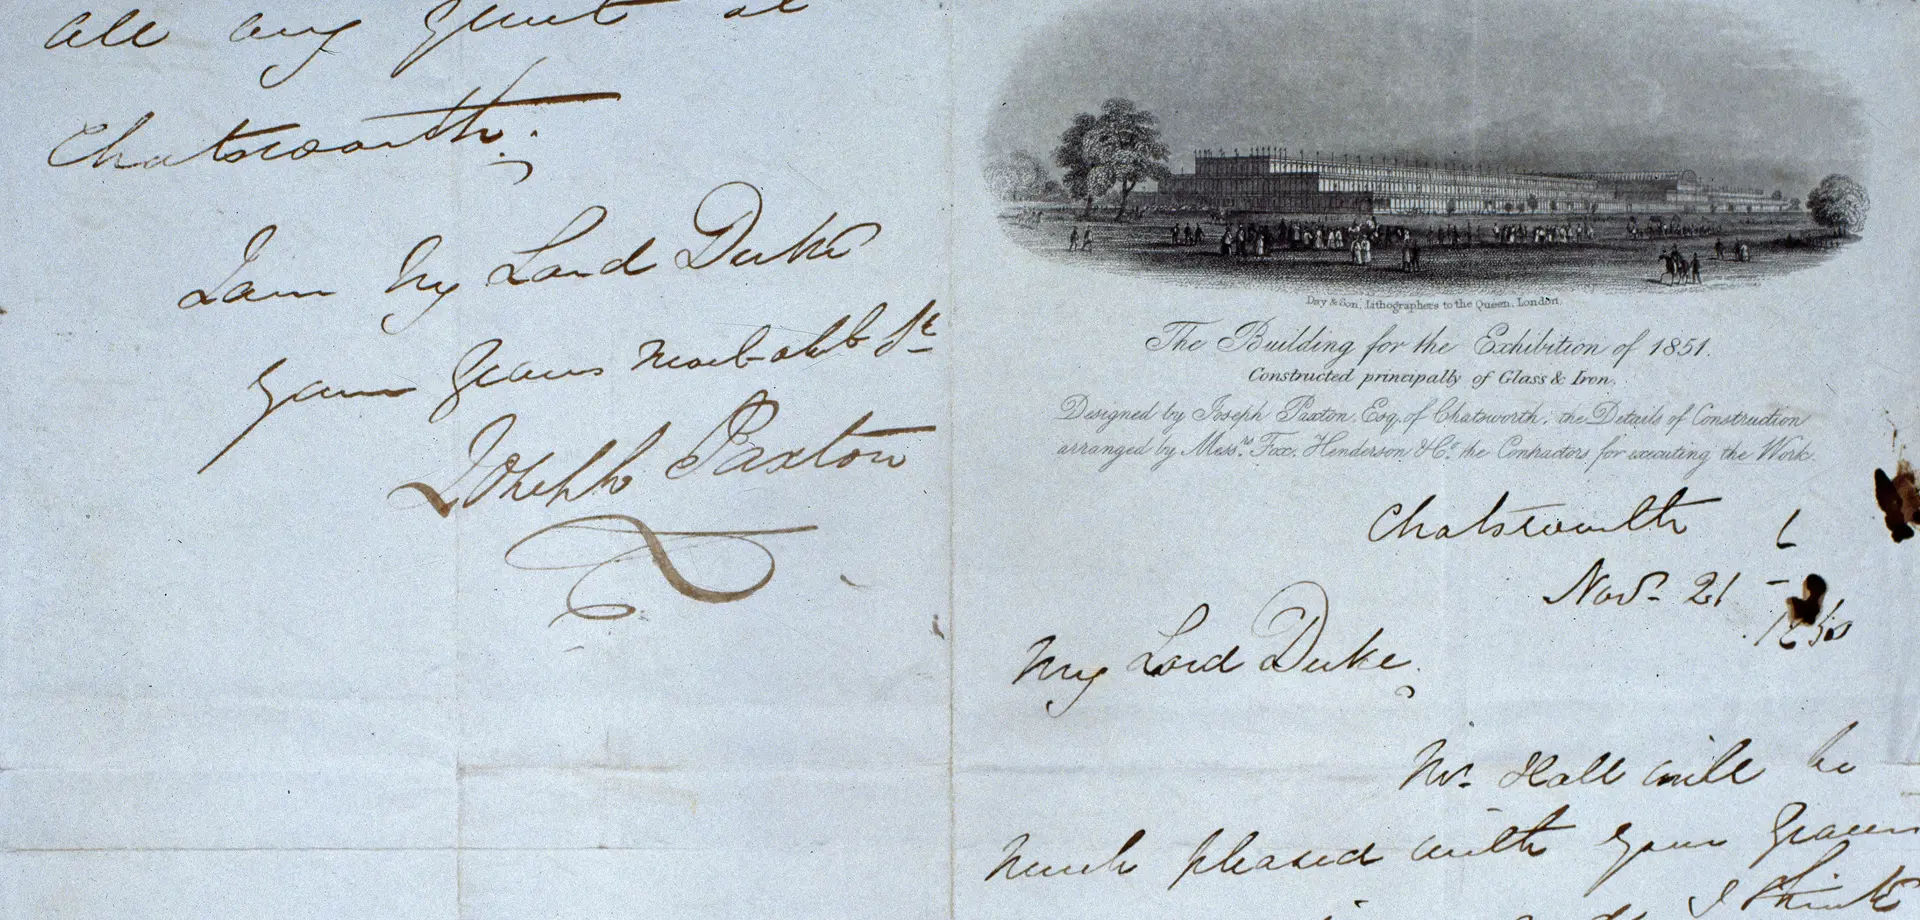 all any quiet at
Chatsworth.
I am My Lord Duke
Your Graces most obt St
Joseph Paxton
Day & Son, Lithographers to the Queen, London.
The Building for the Exhibition of 1851.
Constructed principally of Glass & Iron.
Designed by Joseph Paxton, Esq. of Chatsworth; the Details of Construction
arranged by Messrs. Fox, Henderson & Co. the Contractors for executing the Work.
Chatsworth
Novr. 21
1850
My Lord Duke,
Mr. Hall will be
much pleased with your Graces
I think